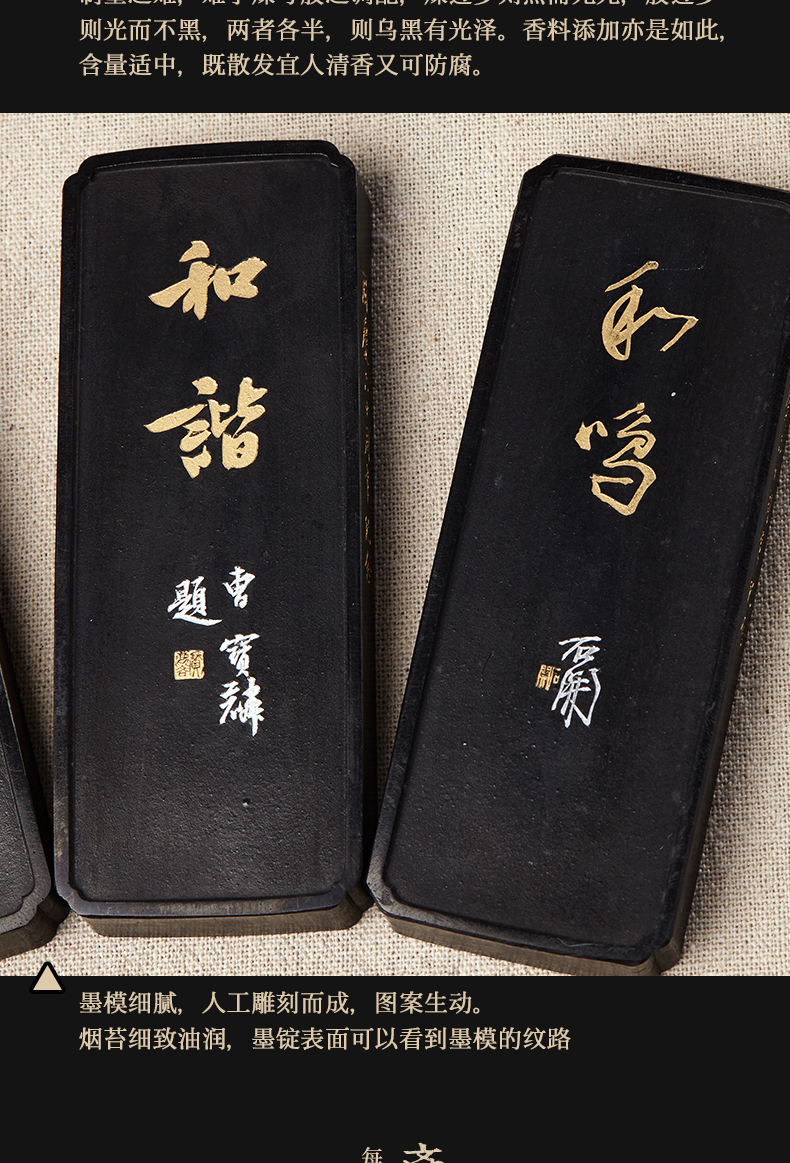 则光而不黑，两者各半，则乌黑有光泽。香料添加亦是如此，
含量适中，既散发宜人清香又可防腐。
和諧
曹寶麟
題
和鸣
石開
墨模细腻，人工雕刻而成，图案生动。
烟苔细致油润，墨锭表面可以看到墨模的纹路
每